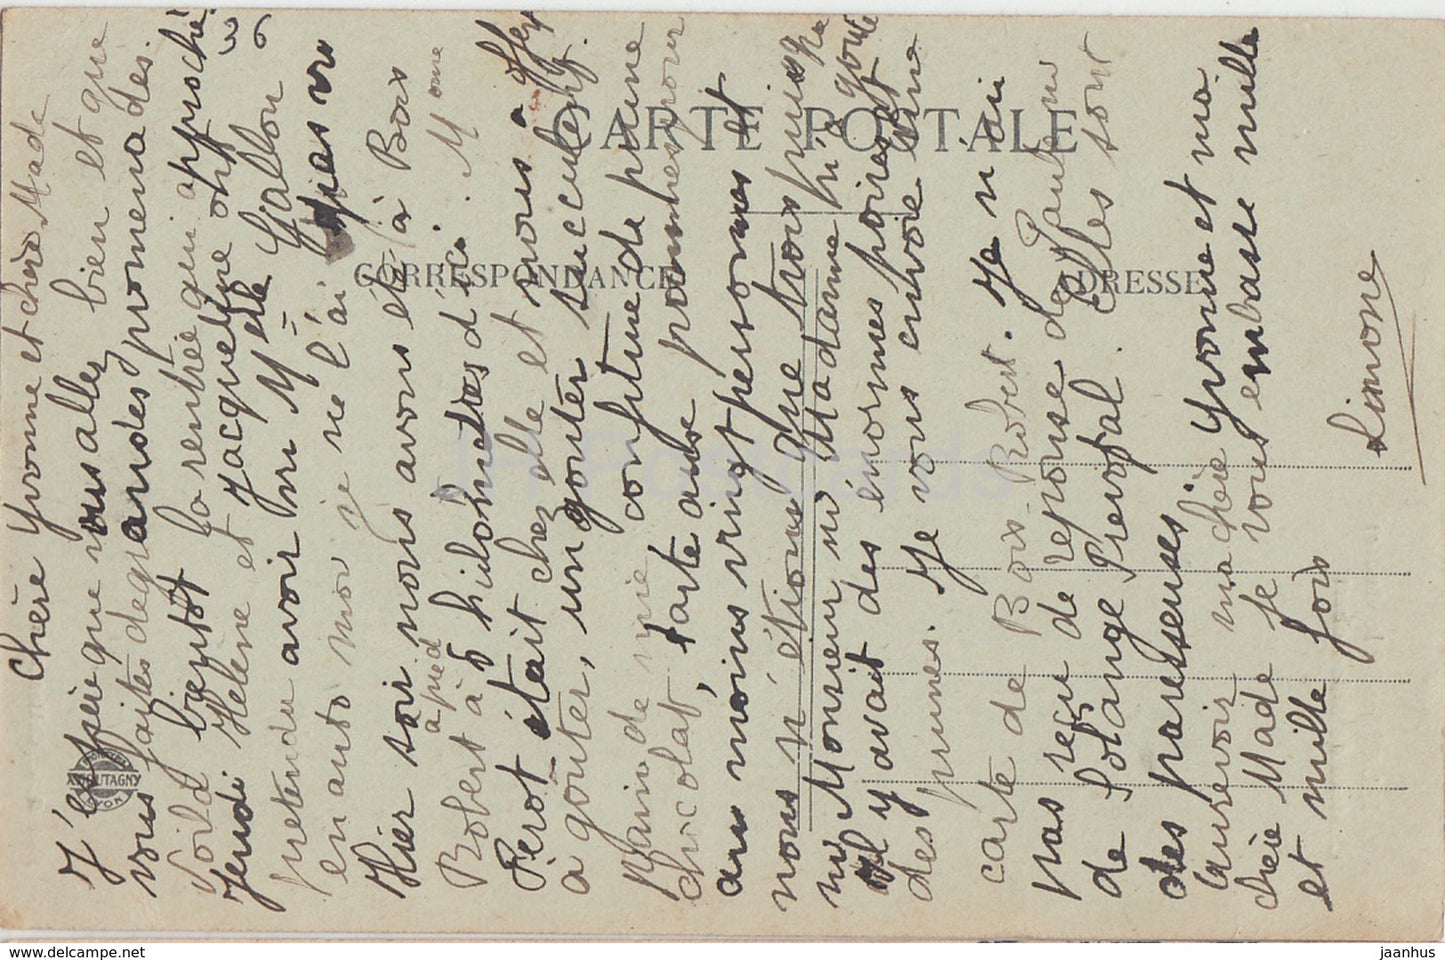 Chère Yvonne et chère Made
J'espère que vous allez bien et que
vous faites de grandes promenades.
Voilà bientôt la rentrée qui approche
Jeudi Hélène et Jacqueline ont
prétendu avoir vu Melle Gallon
en auto moi je ne l'ai pas vu
Hier soir nous avons été à Bois
Robert à pied à 5 kilomètres d'ici. Mme
Pérot était chez elle et nous a offert
à goûter, un goûter succulent.
Pain de mie confiture de prune
chocolat, tarte aux pommes pour
au moins vingt personnes et
nous n'étions que trois puisque
ni Monsieur ni Madame n'a goûté
Il y avait des énormes poires et
des prunes. Je vous envoie une
carte de Bois-Robert. Je n'ai
pas reçu de réponse de Paule ni
de Solange Prevotal. Elles sont
des paresseuses.
Aurevoir ma chère Yvonne et ma
chère Made Je vous embrasse mille
et mille fois
Simone
CARTE POSTALE
CORRESPONDANCE
ADRESSE
LYON
JH Postcards
www.delcampe.net
jaanhus